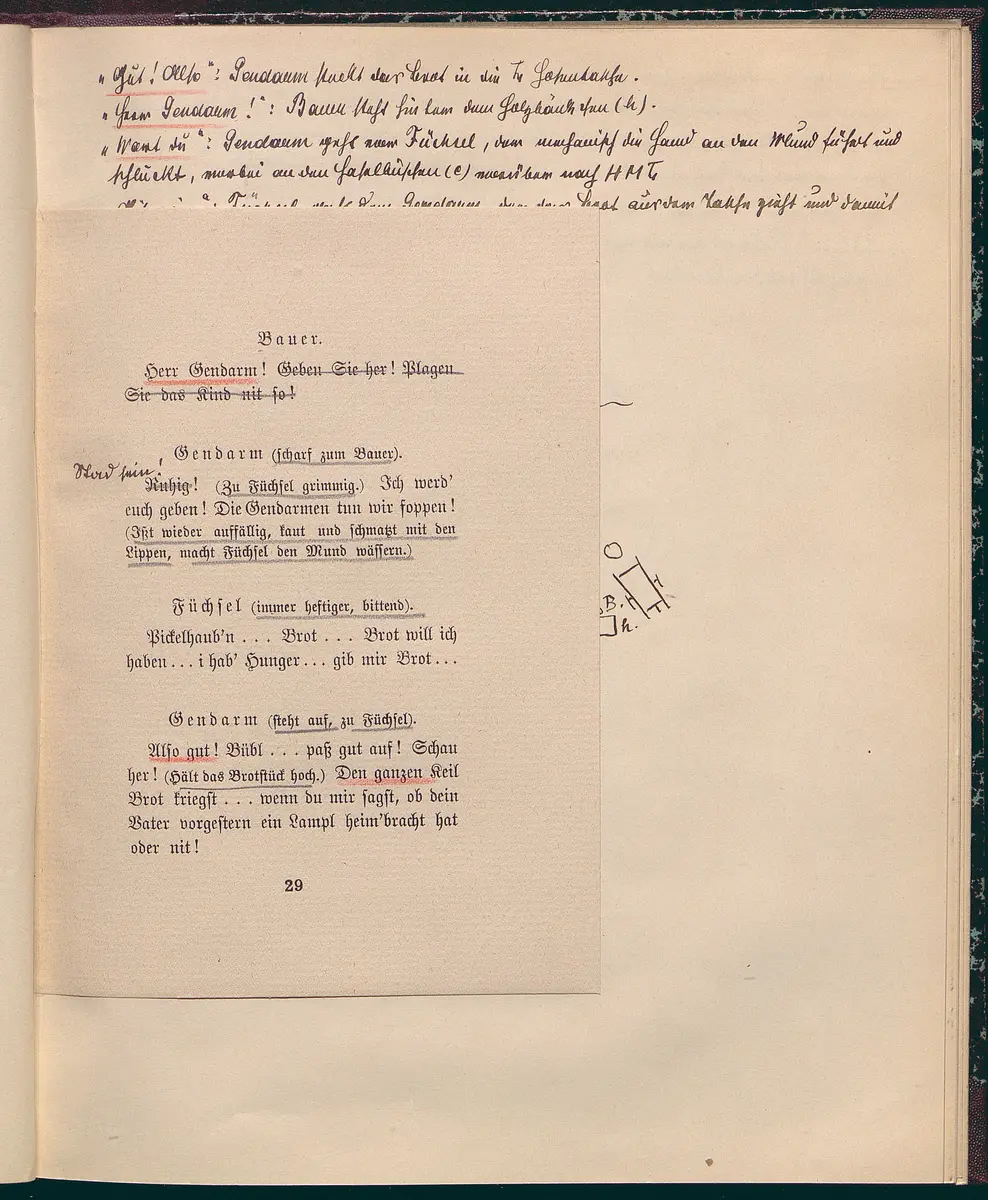 „Gut! Also“: Gendarm steckt das Brot in die Hosentasche.
„Herr Gendarm!“: Bauer steht hinter dem Holzbänkchen (h).
„Wart du“: Gendarm geht vom Füchsel, der mechanisch die Hand an den Mund führt und
schluckt, vorbei an den Haselbüschen (c) vorüber nach HM
Füchsel Gendarm, Brot aus der Tasche zieht und damit
Bauer.
Herr Gendarm! Geben Sie her! Plagen
Sie das Kind nit so!
Gendarm (scharf zum Bauer).
Stad sein!
Ruhig! (Zu Füchsel grimmig.) Ich werd'
euch geben! Die Gendarmen tun wir foppen!
(Ißt wieder auffällig, kaut und schmatzt mit den
Lippen, macht Füchsel den Mund wässern.)
Füchsel (immer heftiger, bittend).
Pickelhaub'n ... Brot ... Brot will ich
haben ... i hab' Hunger ... gib mir Brot ...
B.
h.
Gendarm (steht auf, zu Füchsel).
Also gut! Bübl ... paß gut auf! Schau
her! (Hält das Brotstück hoch.) Den ganzen Keil
Brot kriegst ... wenn du mir sagst, ob dein
Vater vorgestern ein Lampl heim'bracht hat
oder nit!
29